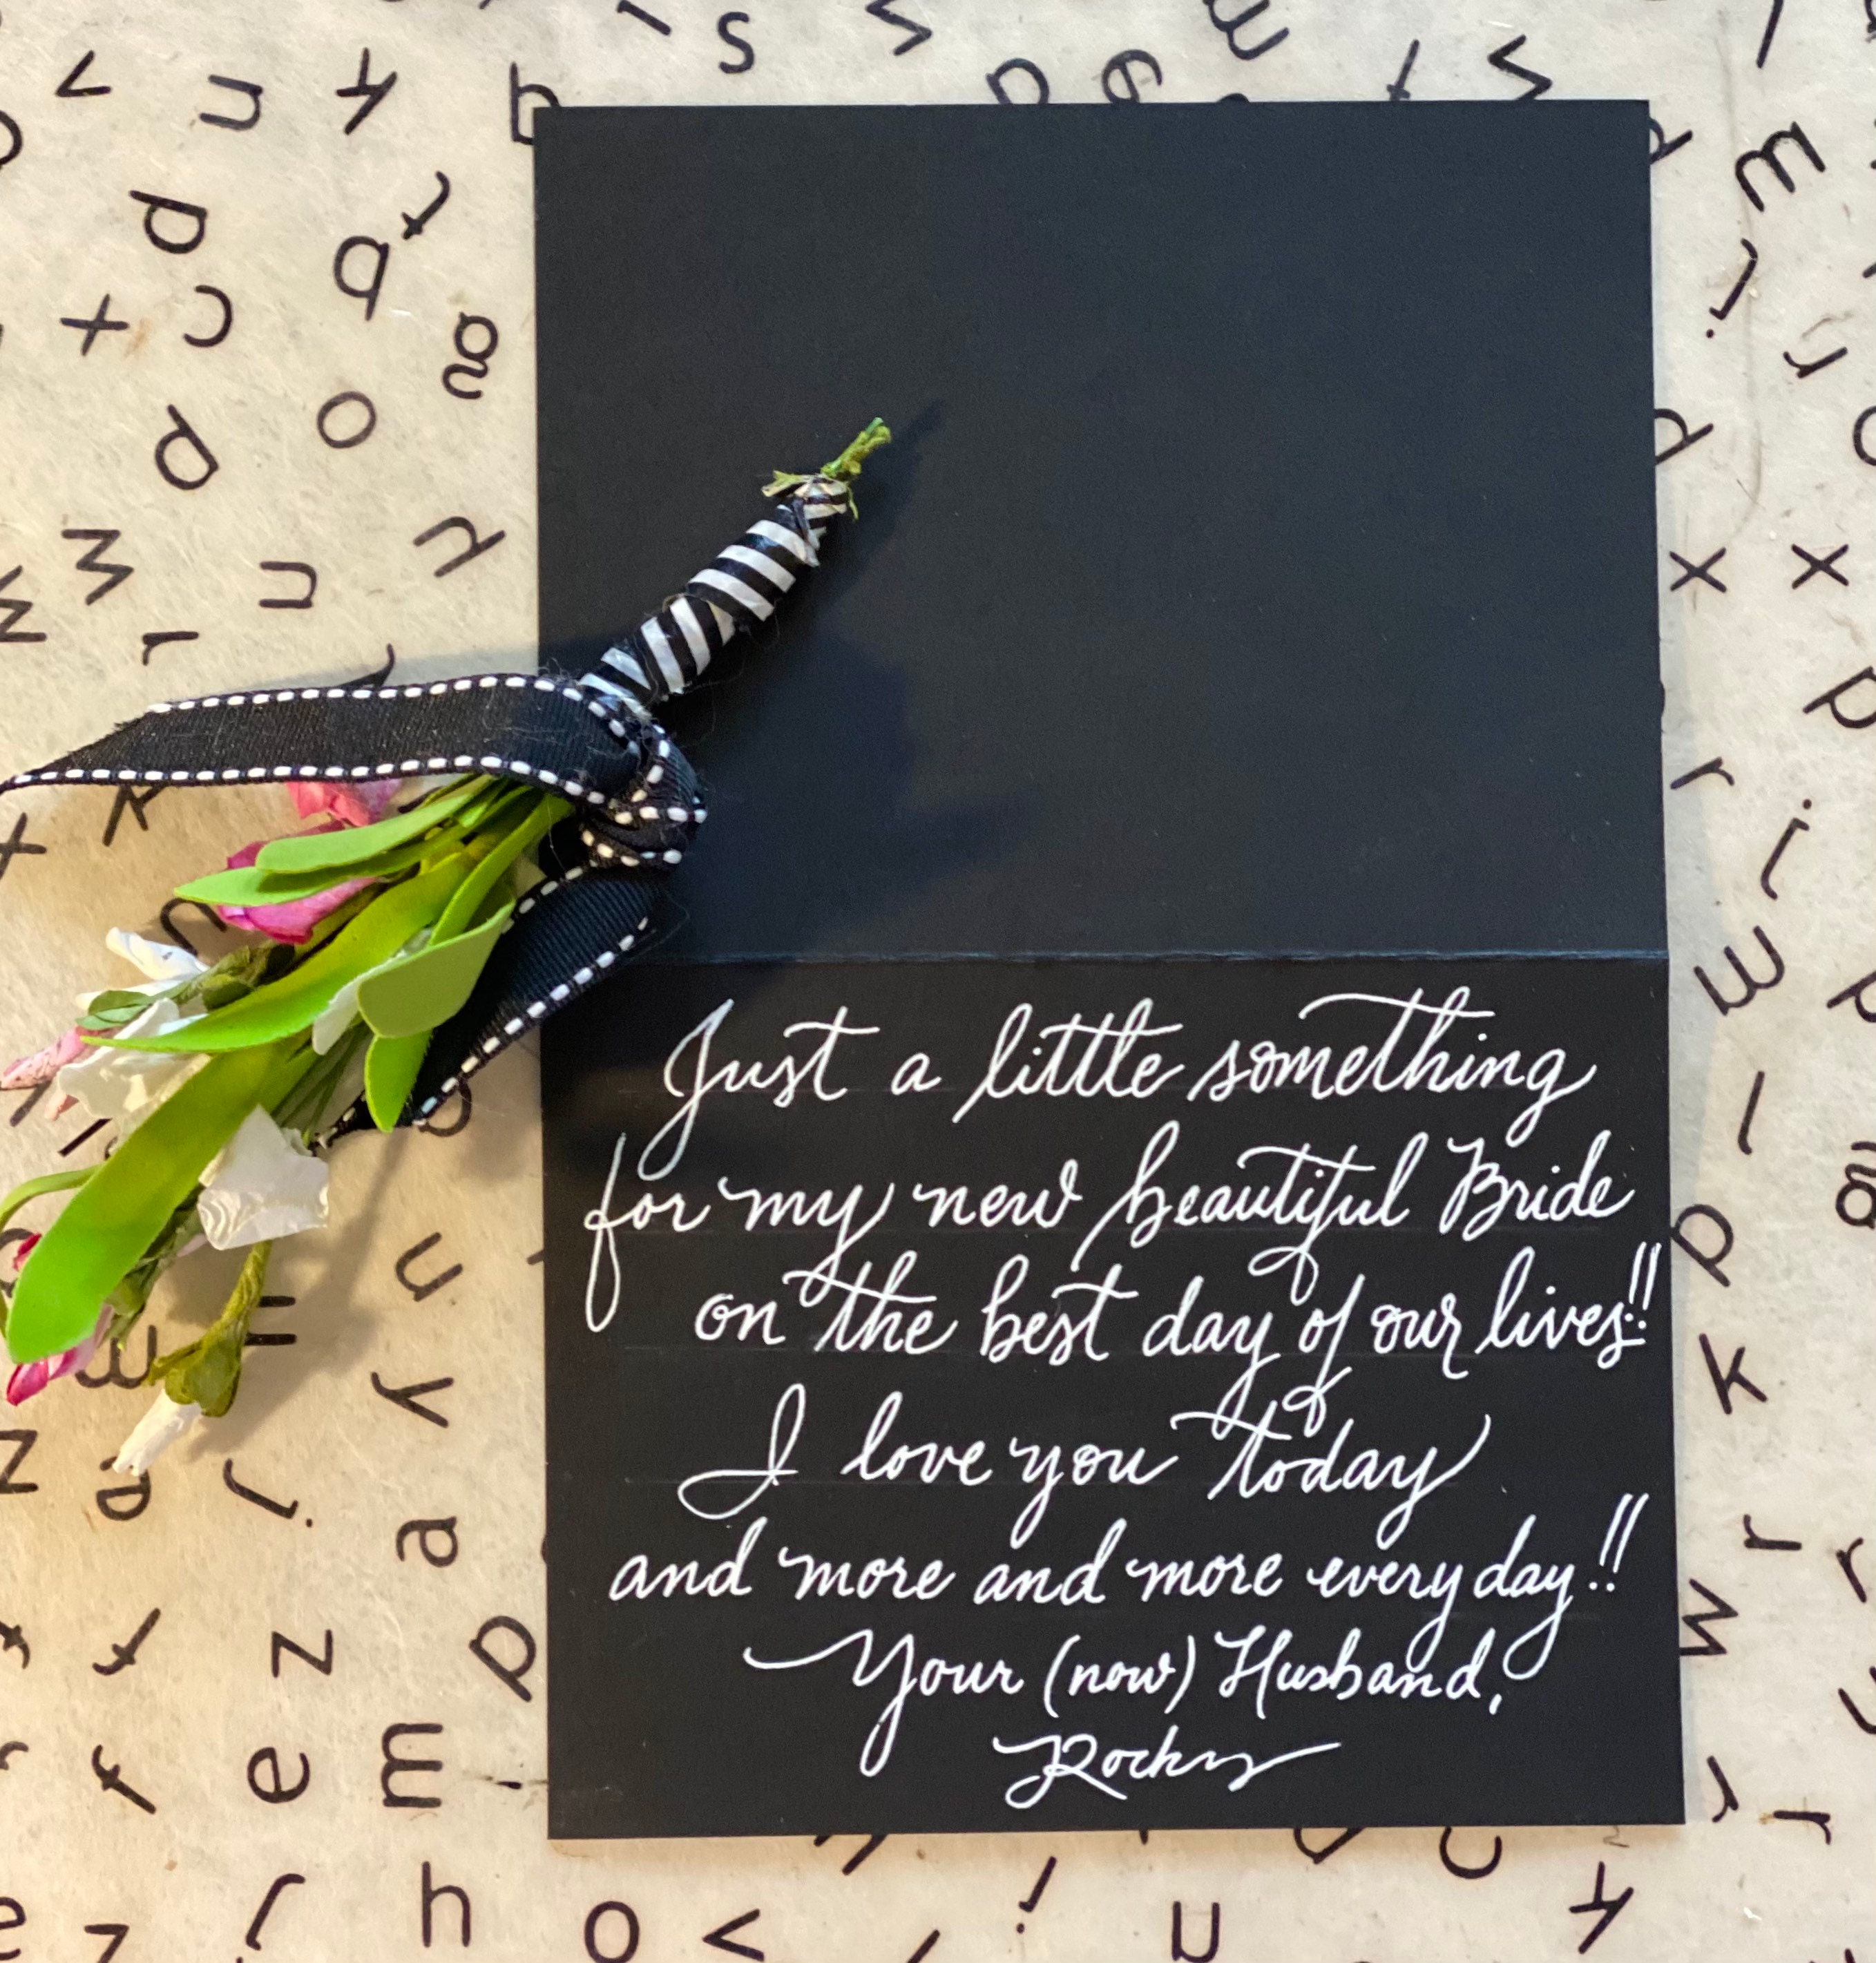 Just a little something
for my new beautiful Bride
on the best day of our lives!!
I love you today
and more and more every day!!
Your (now) Husband,
Rocky